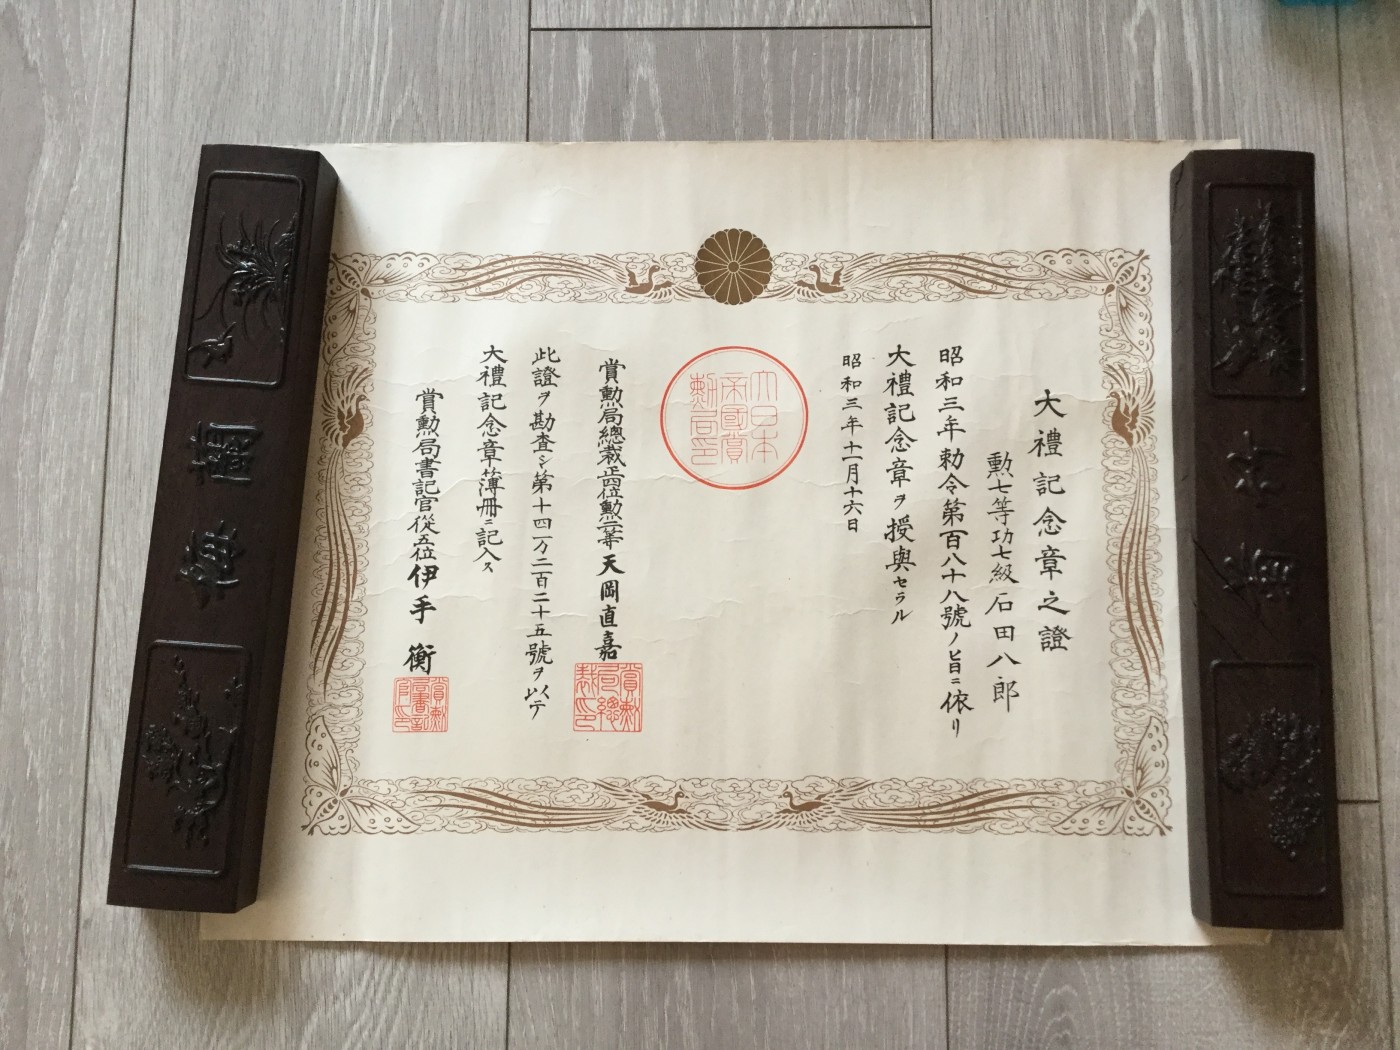 大禮記念章之證
勲七等功七級石田八郎
昭和三年勅令第百八十八號ノ旨ニ依リ
大禮記念章ヲ授與セラル
昭和三年十一月十六日
大日本
帝國賞
勲局印
賞勲局總裁正四位勲二等天岡直嘉
賞勲
局總
裁印
此證ヲ勘査シ第十四万二百二十五號ヲ以テ
大禮記念章簿冊ニ記入ス
賞勲局書記官從五位伊手衡
賞勲
局書記
官印
梅蘭
竹菊